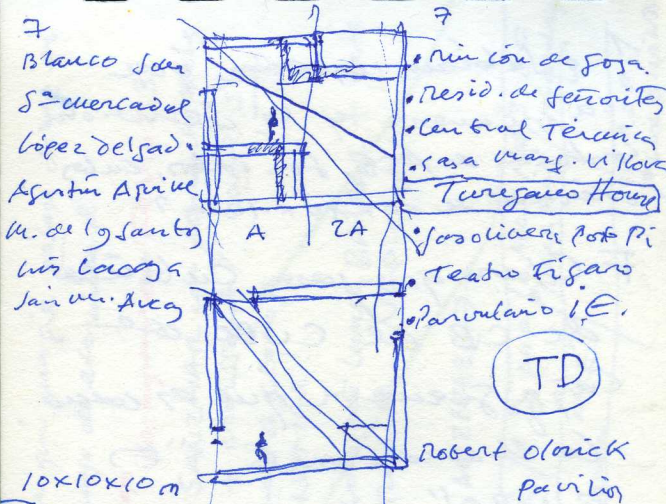 7
Blanco Soler
Gª mercadal
López Delgado
Agustín Aguirre
M. de los Santos
Luis Lacasa
Sánch. Arcas
A
2A
10x10x10 m
7
• Rincón de goya.
• Resid. de Señoritas
• Central Térmica
• Casa Marq. Villora
Turegano House
• Gasolinera Port Pi
• Teatro Fígaro
• Parvulario I.E.
TD
Robert Olnick
Pavilion